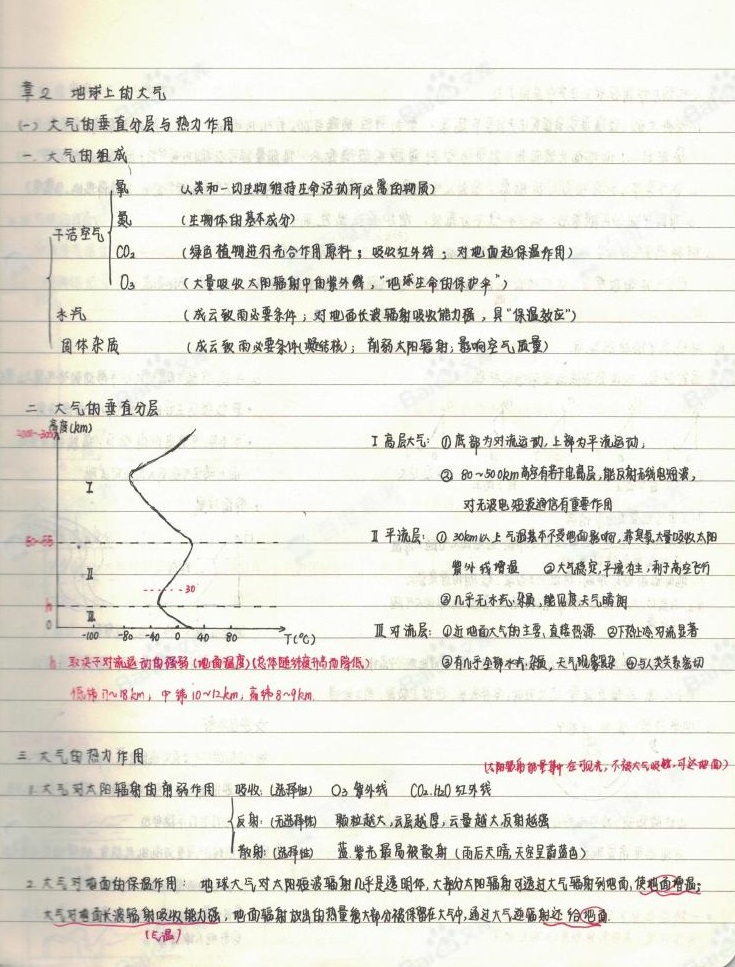 章2 地球上的大气
(一) 大气的垂直分层与热力作用
一. 大气的组成
干洁空气
氧 (人类和一切生物维持生命活动所必需的物质)
氮 (生物体的基本成分)
CO₂ (绿色植物进行光合作用原料; 吸收红外线; 对地面起保温作用)
O₃ (大量吸收太阳辐射中的紫外线, "地球生命的保护伞")
水汽 (成云致雨必要条件; 对地面长波辐射吸收能力强, 具"保温效应")
固体杂质 (成云致雨必要条件(凝结核); 削弱太阳辐射; 影响空气质量)
二. 大气的垂直分层
高度(km)
50-55
h
0
Ⅰ
Ⅱ
Ⅲ
30
-100 -80 -40 0 40 80 T(℃)
Ⅰ 高层大气: ① 底部为对流运动, 上部为平流运动,
② 80~500km高空有若干电离层, 能反射无线电短波,
对无波电短波通信有重要作用
Ⅱ 平流层: ① 30km以上气温基本不受地面影响, 靠臭氧大量吸收太阳
紫外线增温 ②大气稳定, 平流为主, 利于高空飞行
③几乎无水汽、杂质, 能见度大气晴朗
Ⅲ 对流层: ①近地面大气的主要、直接热源 ②下热上冷, 对流显著
③有几乎全部水汽、杂质, 天气现象复杂 ④与人类关系密切
h: 取决于对流运动的强弱 (地面温度) (总体随纬度升高而降低)
低纬17~18km, 中纬10~12km, 高纬8~9km.
三. 大气的热力作用
(太阳辐射能量集中在可见光, 不被大气吸收, 可达地面)
1. 大气对太阳辐射的削弱作用 吸收: (选择性) O₃ 紫外线 CO₂.H₂O 红外线
反射: (无选择性) 颗粒越大, 云层越厚, 云量越大反射越强
散射: (选择性) 蓝.紫光最易被散射 (雨后天晴, 天空呈蔚蓝色)
2. 大气对地面的保温作用: 地球大气对太阳短波辐射几乎是透明体, 大部分太阳辐射可透过大气辐射到地面, 使地面增温;
大气对地面长波辐射吸收能力强, 地面辐射放出的热量绝大部分被保留在大气中, 通过大气逆辐射还给地面.